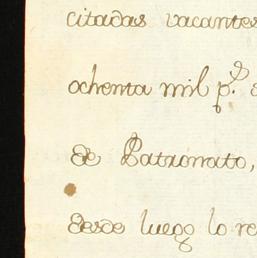 citadas vacantes
ochenta mil p.s
de Patronato,
desde luego lo re